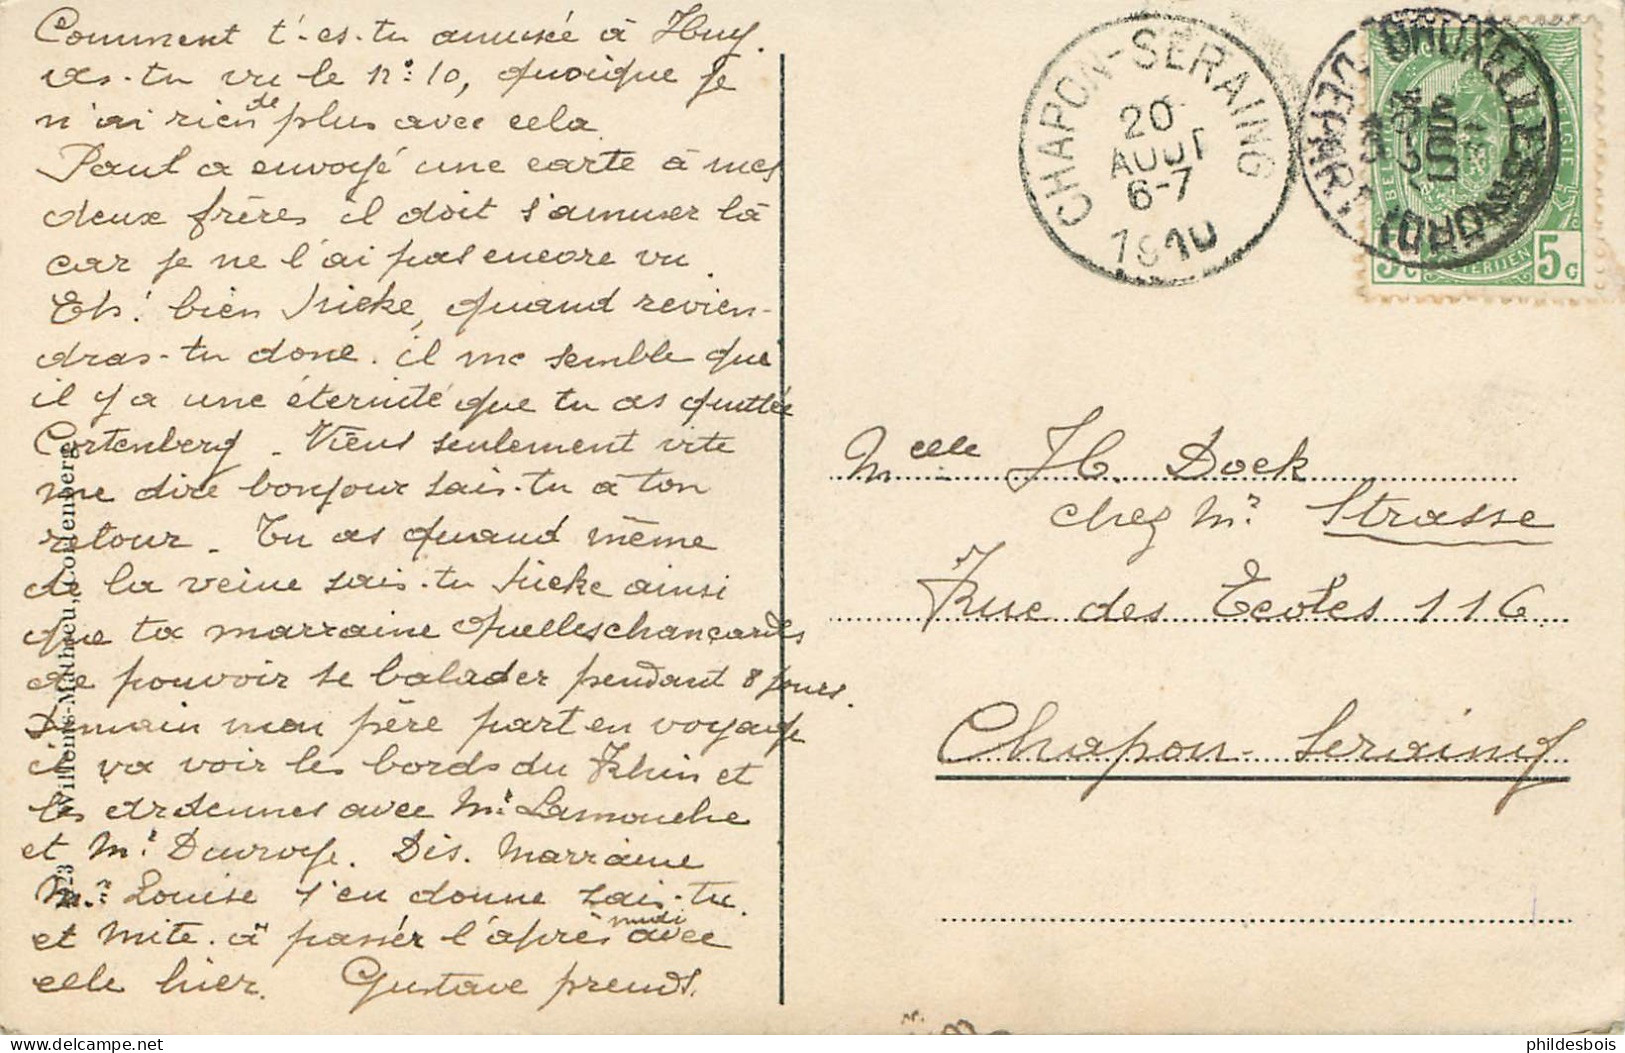 Comment t'-es-tu amusée à Huy.
as-tu vu le n° 10, quoique je
n'ai rien de plus avec cela.
Paul a envoyé une carte à mes
deux frères il doit s'amuser là
car je ne l'ai pas encore vu.
Eh! bien Nicke, quand revien-
dras-tu donc. il me semble que
il y a une éternité que tu as quittée
Cortenberg - Viens seulement vite
me dire bonjour sais-tu à ton
retour - Tu as quand même
de la veine sais-tu Nicke ainsi
que ta marraine quelles chançardes
de pouvoir se balader pendant 8 jours.
Demain mon père part en voyage
il va voir les bords du Rhin et
les Ardennes avec Mr Lamouche
et Mr Duvroye. Dis. Marraine
Louise s'en donne sais-tu.
et Mite. a passer l'après midi avec
elle hier. Gustave prends.
CHAPON-SERAING
20
AOUT
6-7
1910
BRUXELLES (NORD)
DEPART
5c 5c
Melle H. Dock
chez Mr Strasse
Rue des Ecoles 116
Chapon-Seraing
N. 23 Willems-Mathieu, Cortenberg.
phildesbois